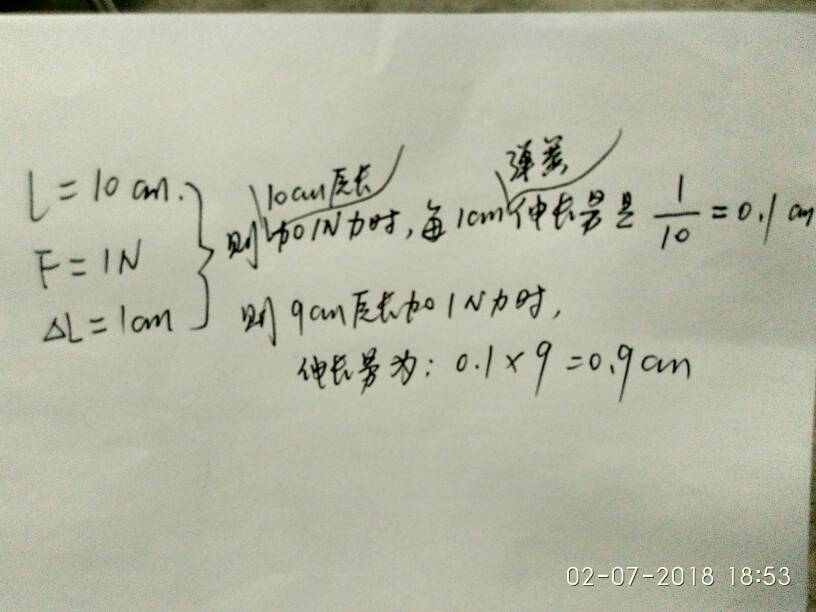 L = 10 cm.
F = 1N
ΔL = 1cm
10cm原长
弹簧
则加1N力时，每1cm伸长量是 1/10 = 0.1 cm
则9cm原长加1N力时，
伸长量为：0.1×9=0.9cm
02-07-2018 18:53